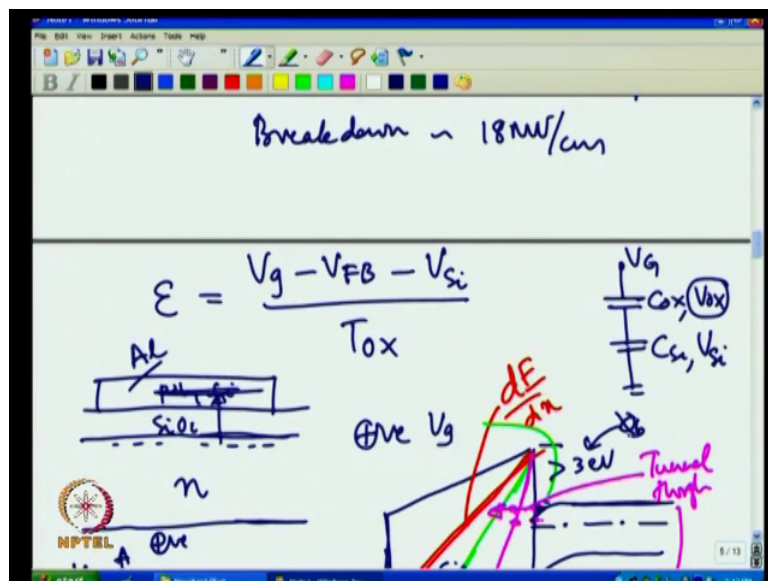 Note1 - Windows Journal
File Edit View Insert Actions Tools Help
B I
Breakdown ~ 18MV/cm
ε = Vg - VFB - VSi / Tox
VG
Cox, Vox
CSi, VSi
Al
SiO2
n
⊕ve
⊕ve Vg
dE/dx
> 3 eV
Tunnel
through
NPTEL
5 / 13
start